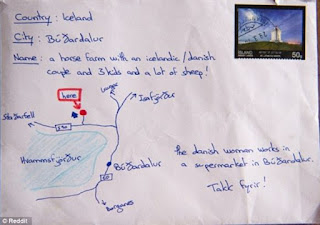 Country : Iceland
City : Búðardalur
Name : a horse farm with an icelandic/danish
couple and 3 kids and a lot of sheep!
ISLAND
50g
Isafjörður
here
Hvammsfjörður
Búðardalur
60
Borgarnes
the danish woman works in
a supermarket in Búðardalur.
Takk fyrir!
© Reddit